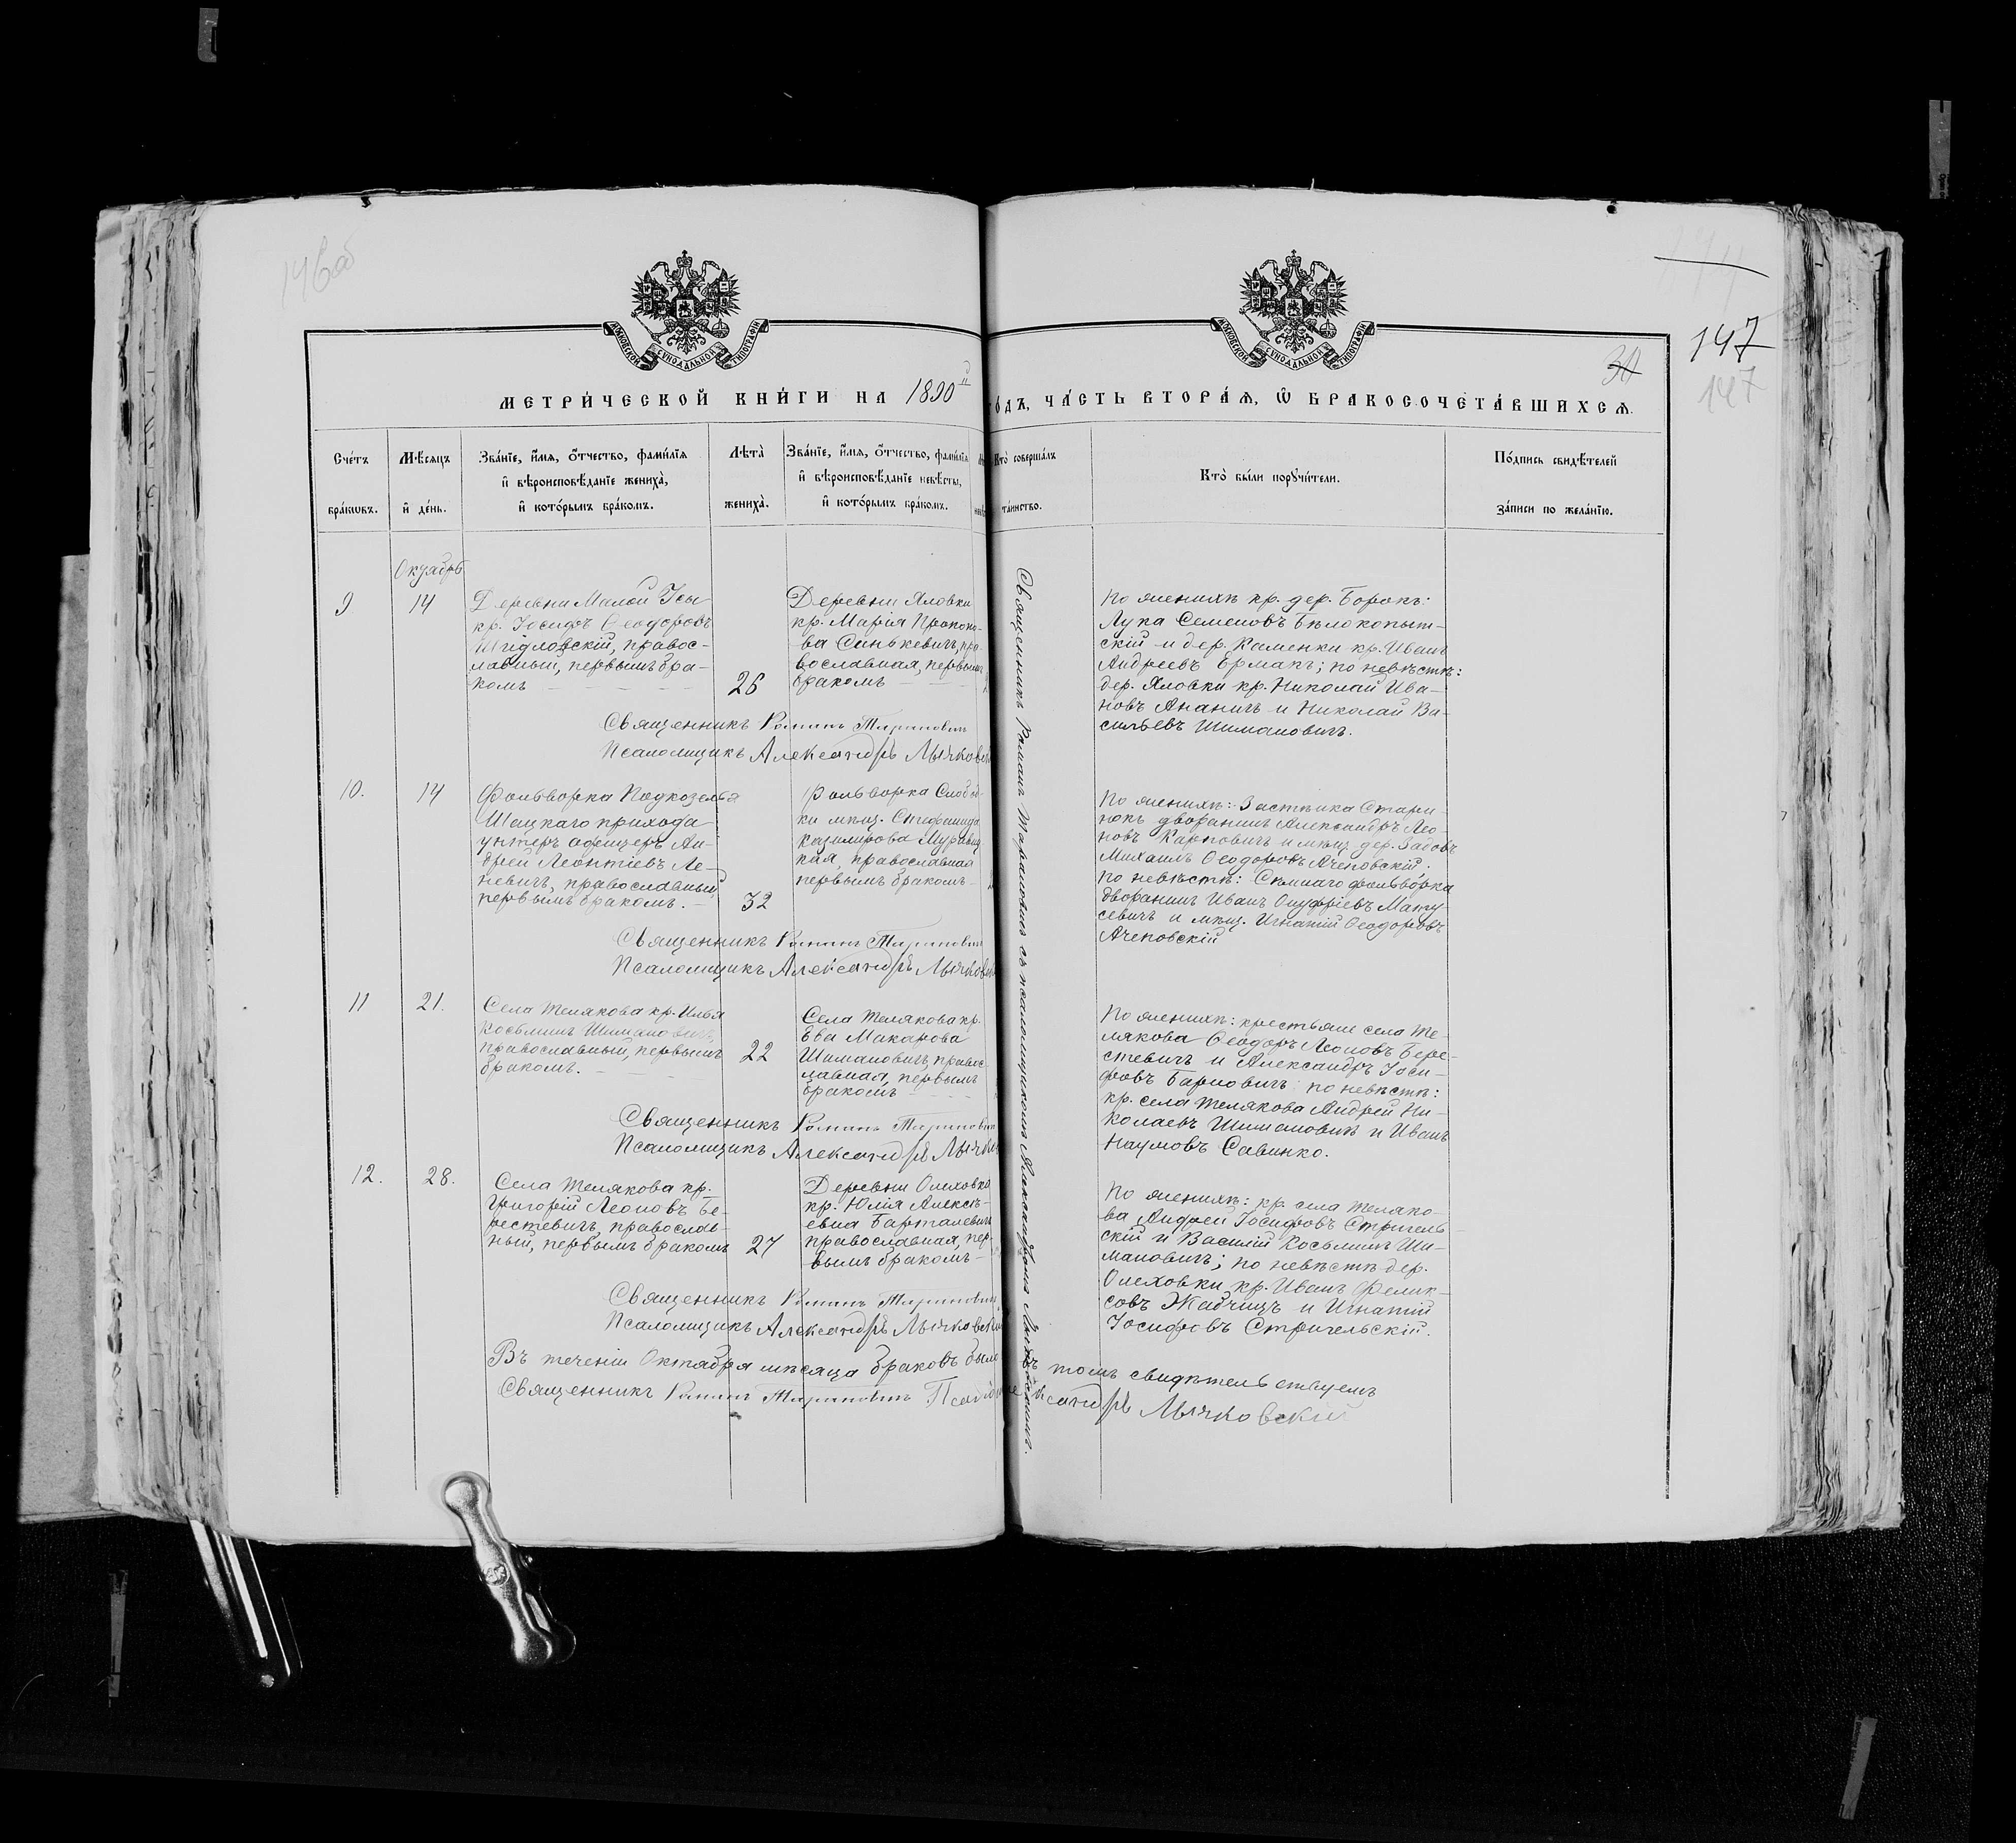 146об
147
147
МОСКОВСКОЙ СѴНОДАЛЬНОЙ ТИПОГРАФІИ
МОСКОВСКОЙ СѴНОДАЛЬНОЙ ТИПОГРАФІИ
МЕТРИ́ЧЕСКОЙ КНИ́ГИ НА 1890й
ГО́ДЪ, ЧА́СТЬ ВТОРА́Я, Ѿ БРАКОСОЧЕТА́ВШИХСЯ.
Сче́тъ бра́кωвъ.
Мѣ́сяцъ и҆ де́нь.
Зва́нїе, и҆́мя, ѻ҆́тчество, фами́лїя
и҆ вѣроисповѣ́данїе жениха̀,
и҆ кото́рымъ бра́комъ.
Лѣта̀ жениха̀.
Зва́нїе, и҆́мя, ѻ҆́тчество, фами́лїя
и҆ вѣроисповѣ́данїе невѣ́сты,
и҆ кото́рымъ бра́комъ.
Кто̀ соверша́лъ
та́инство.
Кто̀ бы́ли порꙋчи́тели.
По́дпись свидѣ́телей
за́писи по жела́нїю.
Октябрь
9
14
Деревни Малой Усы
кр. Іосифъ Ѳеодоровъ
Шидловскій, правос-
лавный, первымъ бра-
комъ
26
Деревни Яловки
кр. Марія Прокопо-
ва Синькевичъ, пра-
вославная, первымъ
бракомъ
По женихѣ кр. дер. Борокъ:
Лука Семеновъ Бѣлокопыт-
скій и дер. Каменки кр. Иванъ
Андреевъ Ермакъ; по невѣстѣ:
дер. Яловки кр. Николай Ива-
новъ Ананичъ и Николай Ва-
сильевъ Шимановичъ.
Священникъ Романъ Тарановичъ
Псаломщикъ Александръ Лычковскій
10.
14
Фольворка Подкозелья
Шацкаго прихода
унтеръ офицеръ Ан-
дрей Леонтіевъ Ле-
невичъ, православный,
первымъ бракомъ.
32
Фольворка Слобод-
ки мѣщ. Стефанида
Казимирова Мурав
кая, православная
первымъ бракомъ
По женихѣ: Застѣнка Стари
нокъ дворанинъ Александръ Лео-
новъ Карповичъ и мѣщ. дер.
Михаилъ Ѳеодоровъ Ачеповскій.
по невѣстѣ: фольворка
дворанинъ Иванъ Онуфріевъ Мату-
севичъ и мѣщ. Игнатій Ѳеодоровъ
Ачеповскій
Священникъ Романъ Тарановичъ
Псаломщикъ Александръ Лычковскій
11
21.
Села Телякова кр. Илья
Косьминъ Шимановичъ,
православный, первымъ
бракомъ.
22
Села Телякова кр.
Ева Макарова
Шимановичъ, правос-
лавная, первымъ
бракомъ
По женихѣ: крестьяне села Те-
лякова Ѳеодоръ Леоновъ Бере-
стевичъ и Александръ Іоси-
фовъ Барновичъ: по невѣстѣ:
кр. села Телякова Андрей Ни-
колаевъ Шимановичъ и Иванъ
Наумовъ Савинко.
Священникъ Романъ Тарановичъ
Псаломщикъ Александръ Лычковскій
12.
28.
Села Телякова кр.
Григорій Леоновъ Бе-
рестевичъ, православ-
ный, первымъ бракомъ
27
Деревни Олеховка
кр. Юлія Алексѣ-
евна Барталевичъ
православная, пер-
вымъ бракомъ
По женихѣ: кр. села Теляко-
ва Андрей Іосифовъ Стригель-
скій и Василій Косьминъ Ши-
мановичъ; по невѣстѣ дер.
Олеховки кр. Иванъ Фелик-
совъ Жабчицъ и Игнатій
Іосифовъ Стригельскій.
Священникъ Романъ Тарановичъ
Псаломщикъ Александръ Лычковскій
Священникъ Романъ Тарановичъ съ псаломщикомъ Александромъ Лычковскимъ.
Въ теченіи Октября мѣсяца браковъ было въ томъ свидѣтельствуемъ
Священникъ Романъ Тарановичъ Александръ Лычковскій